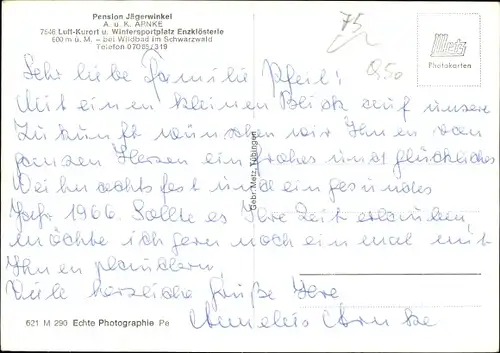 Pension Jägerwinkel
A. u. K. ARNKE
7546 Luft-Kurort u. Wintersportplatz Enzklösterle
600 m ü. M. – bei Wildbad im Schwarzwald
Telefon 07085/319
75
Metz
Photokarten
0,50
Sehr liebe Familie Pfeil!
Mit einen kleinen Blick auf unsere
Zukunft wünschen wir Ihnen von
ganzen Herzen ein frohes und glückliches
Weihnachtsfest und ein gesundes
Jahr 1966. Sollte es Ihre Zeit erlauben,
möchte ich gern noch einmal mit
Ihnen plaudern.
Viele herzliche Grüße Ihre
Annelies Arnke
Gebr. Metz, Tübingen
621 M 290 Echte Photographie Pe